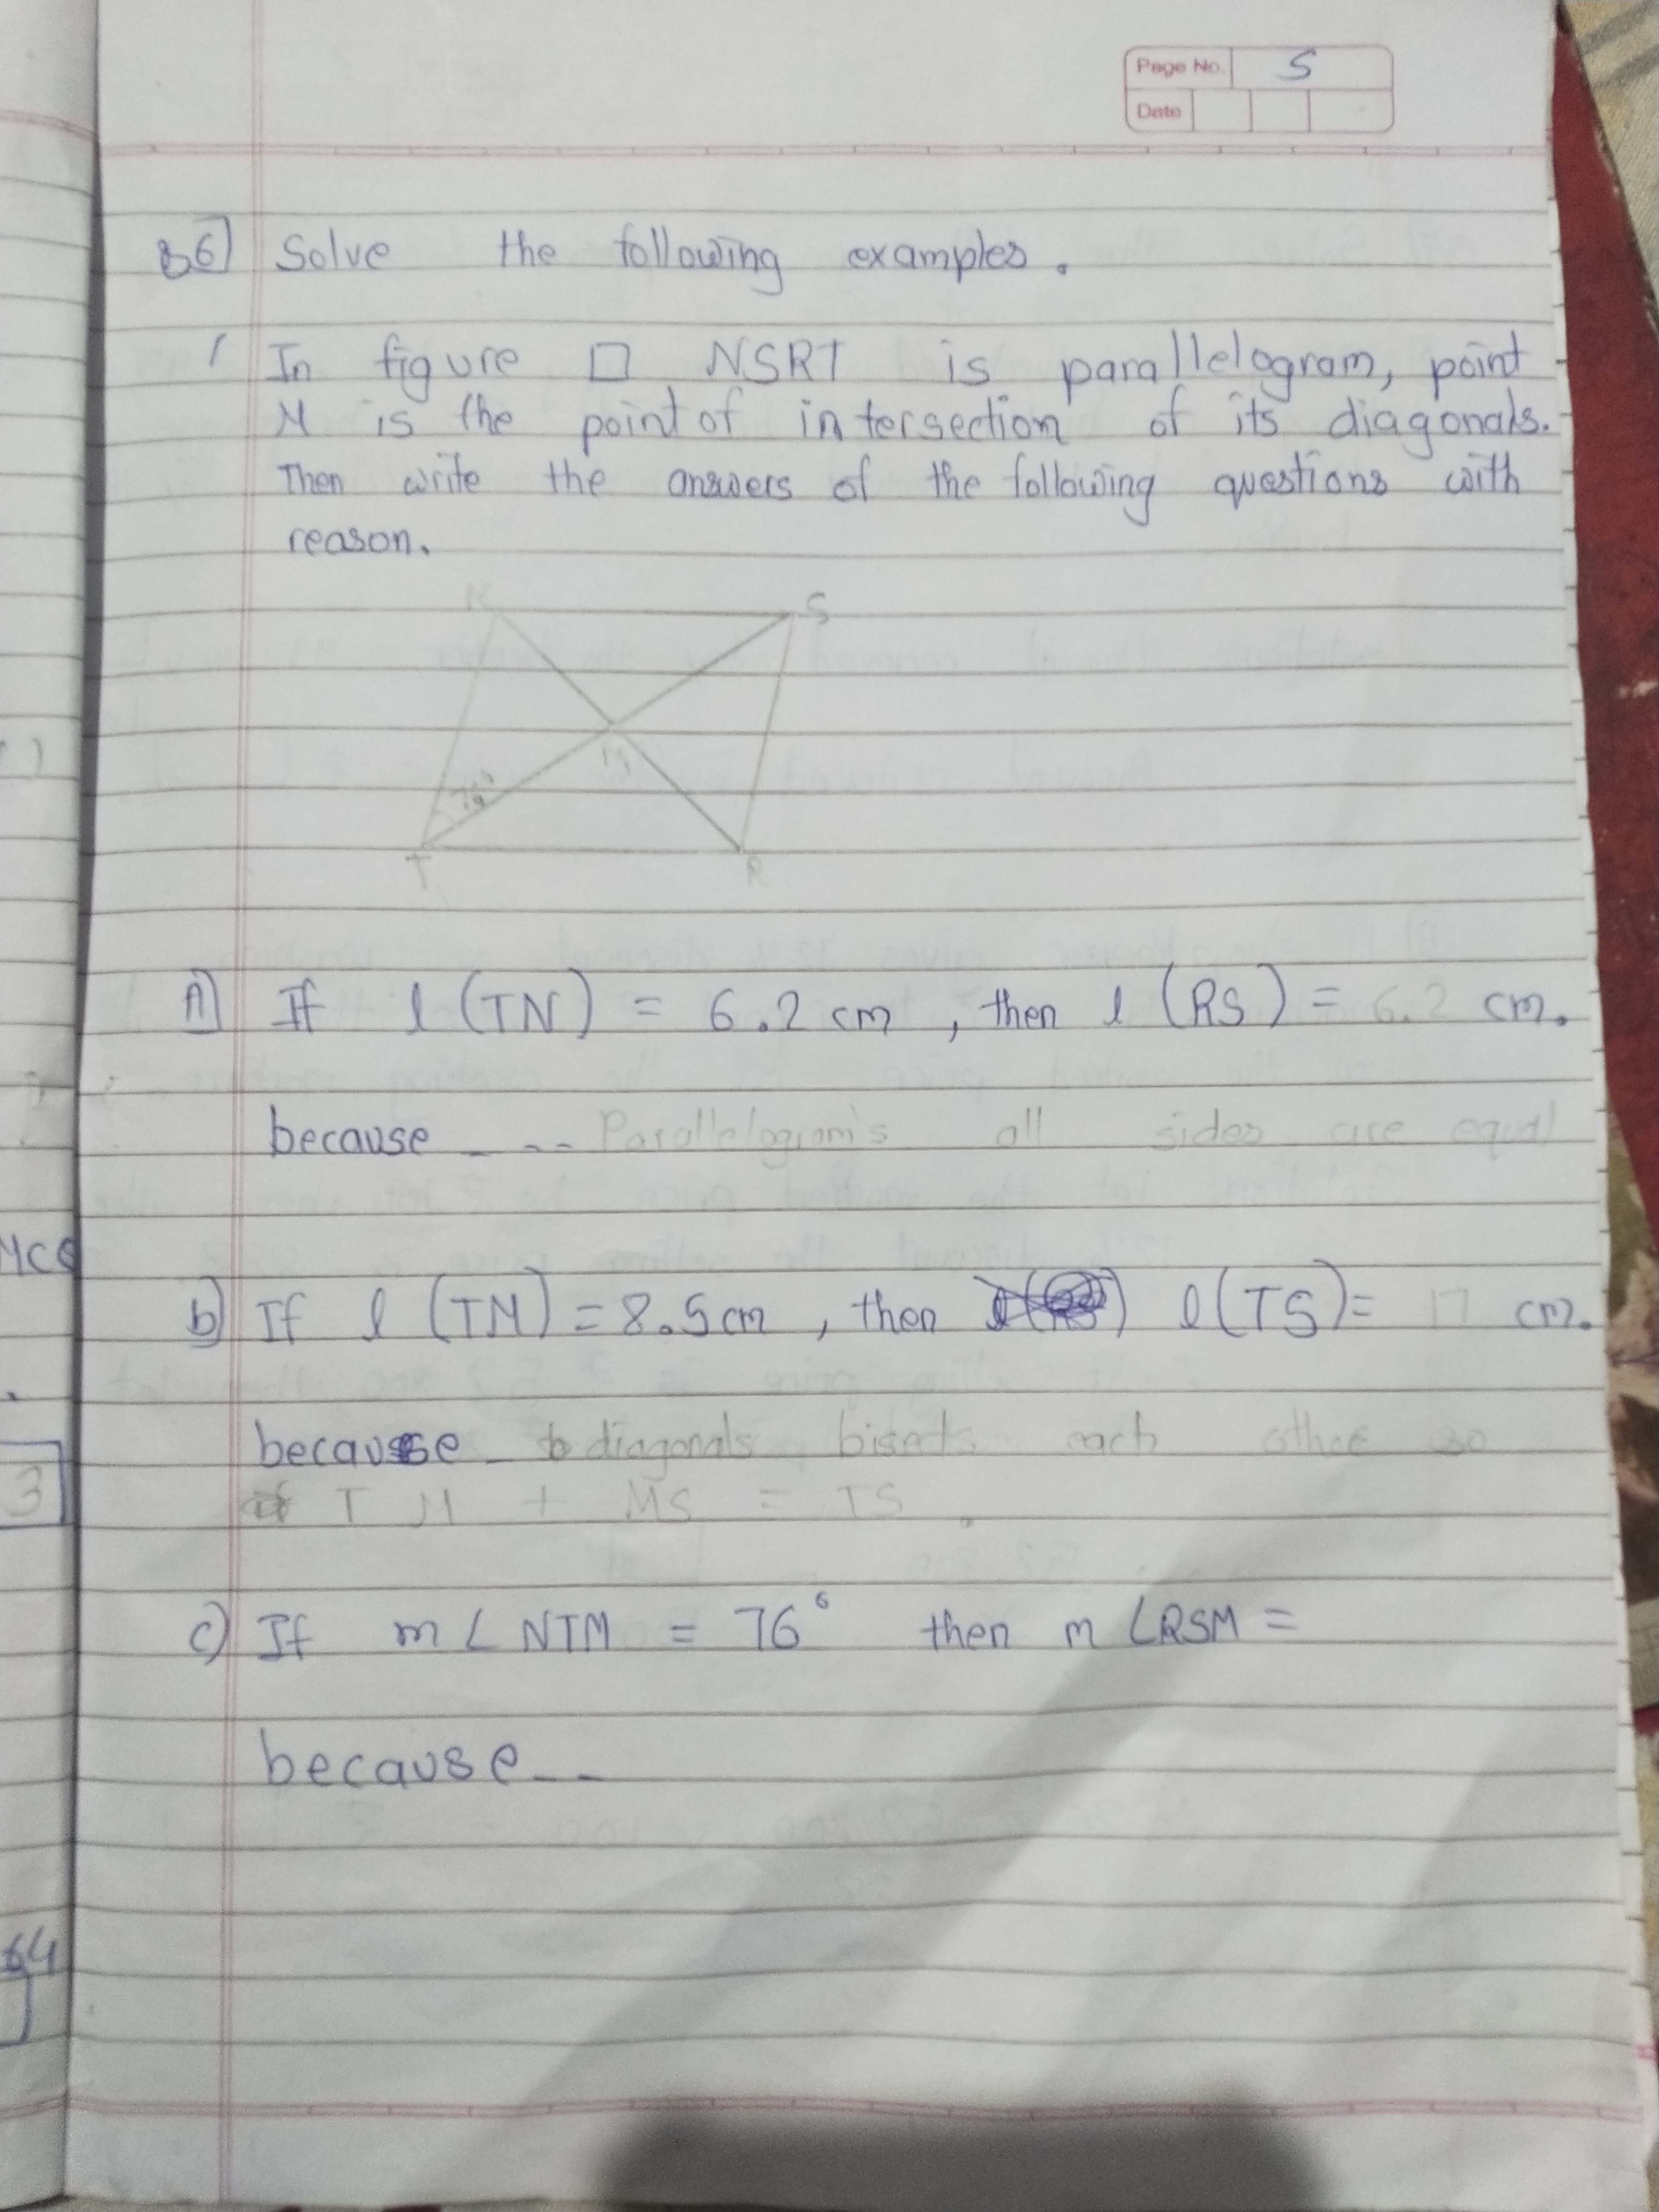 Page No. 5
Date
36] Solve the following examples.
1 In figure □ NSRT is parallelogram, point
M is the point of intersection of its diagonals.
Then write the answers of the following questions with
reason.
N S
M
T R
A] If l (TN) = 6.2 cm, then l (RS) = 6.2 cm.
because --- Parallelogram's all sides are equal
b) If l (TM) = 8.5 cm, then l(TS) = 17 cm.
because diagonals bisects each other so
TM + MS = TS.
c) If m∠NTM = 76° then m∠RSM =
because --
MCQ
3
64